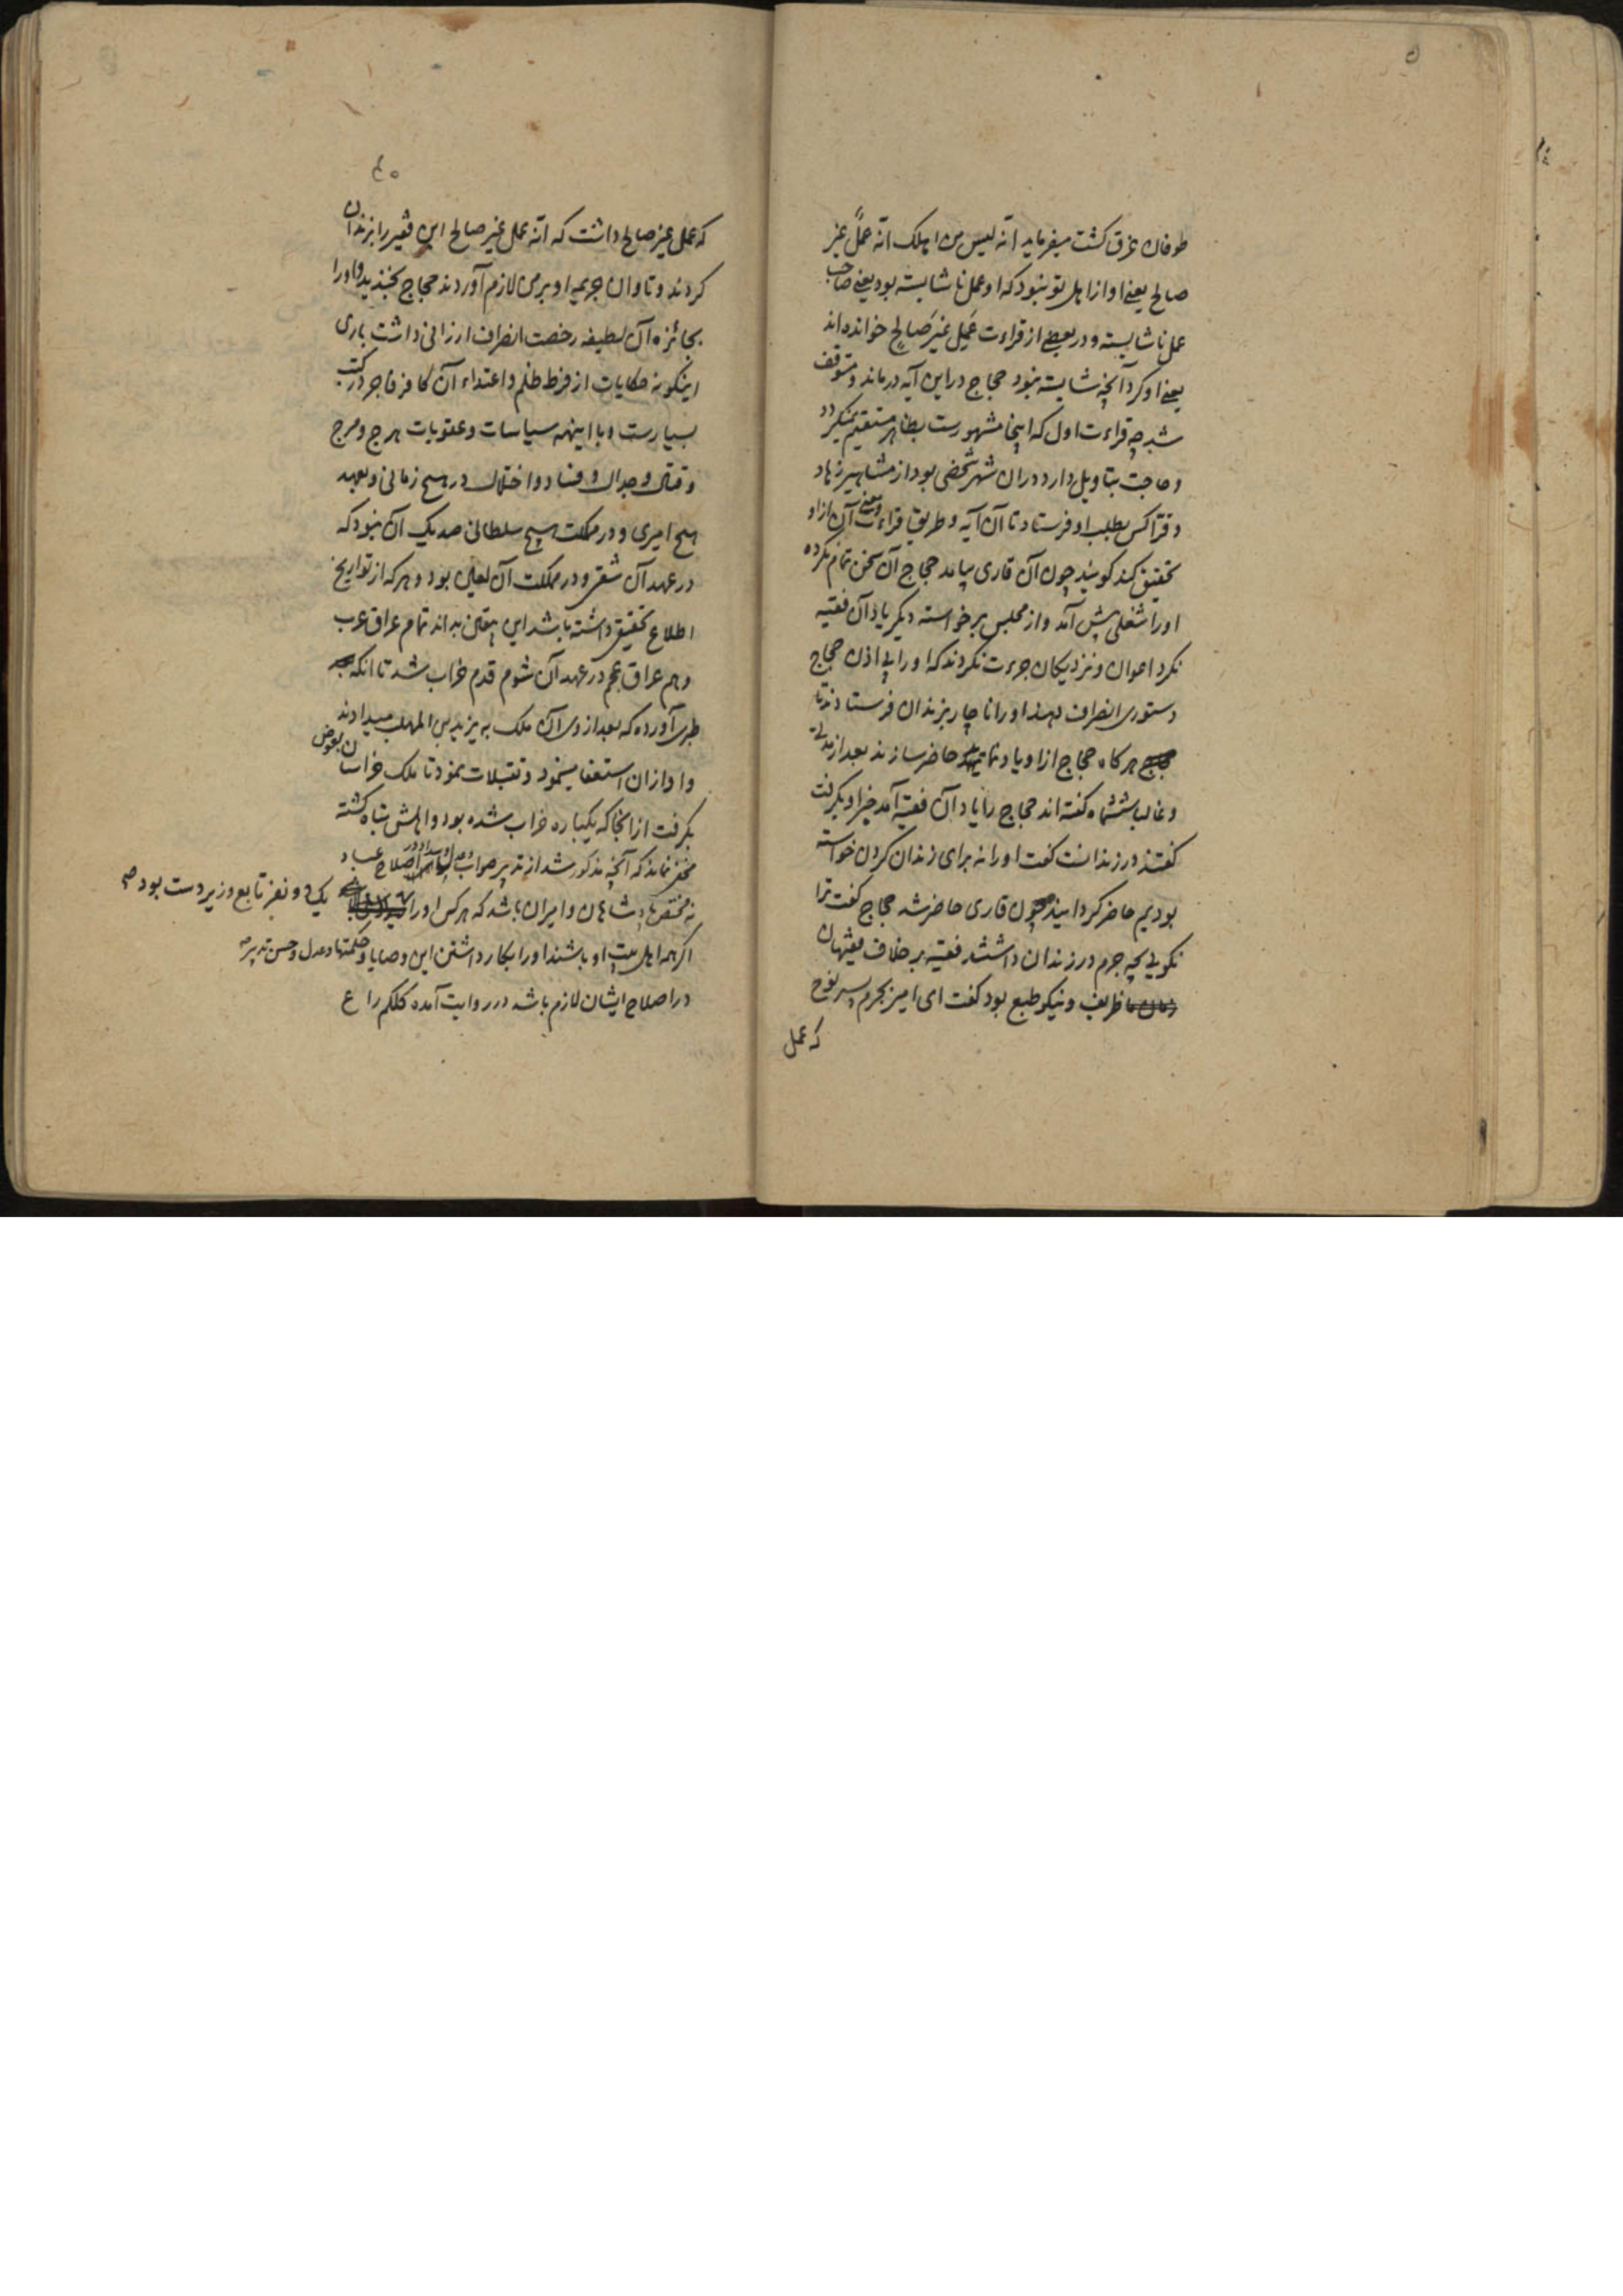 طوفان غرق کشت میفرماید انه لیس من اهلک انه عملٌ غیر
صالح یعنی او از اهل تو نبود که او عمل ناشایسته بود یعنی صاحب
عمل ناشایسته و در بعضی از قراءت عَمِلَ غیرَ صَالحٍ خوانده اند
یعنی او کرد آنچه شایسته نبود حجاج در این آیه درماند و متوقف
شد چه قراءت اول که اینجا مشهورست بظاهر مستقیم نمیکردد
و حاجت بتاویل دارد در ان شهر شخصی بود از مشاهیر زهاد
و قرّا کس بطلب او فرستاد تا آن آیه و طریق قراءت و معنی آن از او
تحقیق کند کویند چون آن قاری بیامد حجاج آن سخن تمام نکرده
او را شغلی پیش آمد و از مجلس برخواسته دیکر یاد آن فقیه
نکرد اعوان و نزدیکان جرءت نکردند که او را بی اذن حجاج
دستوری انصراف دهند او را ناچار بزندان فرستادند تا
هرکاه حجاج از او یاد نماید حاضر سازند بعد از مدتی
و غالبا ششماه کفته اند حجاج را یاد آن فقیه آمد خبر او بکرفت
کفتند در زندانست کفت او را نه برای زندان کردن خواسته
بودیم حاضر کردانید چون قاری حاضر شد حجاج کفت ترا
نکویی بچه جرم در زندان داشتند فقیه بر خلاف فقیهان
زمان ما ظریف و نیکو طبع بود کفت ای امیر بجرم پسر نوح
که عمل
٤٥
که عمل غیر صالح داشت که انه عمل غیر صالح این فقیر را بزندان
کردند و تاوان جریمه او بر من لازم آوردند حجاج بخندید و او را
بجائزه آن لطیفه رخصت انصراف ارزانی داشت باری
اینکونه حکایات از فرط ظلم و اعتداء آن کافر فاجر در کتب
بسیارست و با اینهمه سیاسات و عقوبات هرج و مرج
و قتال و جدال و فساد و اختلال در هیچ زمانی و بعهد
هیچ امیری و در مملکت هیچ سلطانی صد یک آن نبود که
در عهد آن شقی و در مملکت آن لعین بود و هر که از تواریخ
اطلاع تحقیق داشته باشد این بیقین بداند تمام عراق عرب
و هم عراق عجم در عهد آن شوم قدم خراب شد تا انکه
طبری آورده که بعد از وی آن ملک به یزید بن المهلب میدادند
و او از ان استعفا مینمود و تقبلات نمود تا ملک خراسان بعوض
بکرفت از انجا که یکباره خراب شده بود و اهلش تباه کشته
مخفی نماند که آنچه مذکور شد از تدبیر صواب اصلاح عباد
نه مختص پادشاهان و امیران باشد که هر کس او را یک دو نفر تابع و زیردست بود
اکر همه اهل بیت او باشند او را بکار داشتن این وصایا و حکمتها و عدل و حسن تدبیر
در اصلاح ایشان لازم باشد در روایت آمده کلکم راع